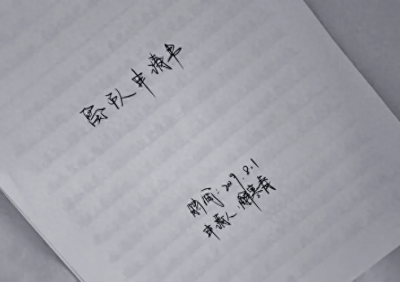 离队申请书
时间:2019.8.1
申请人: